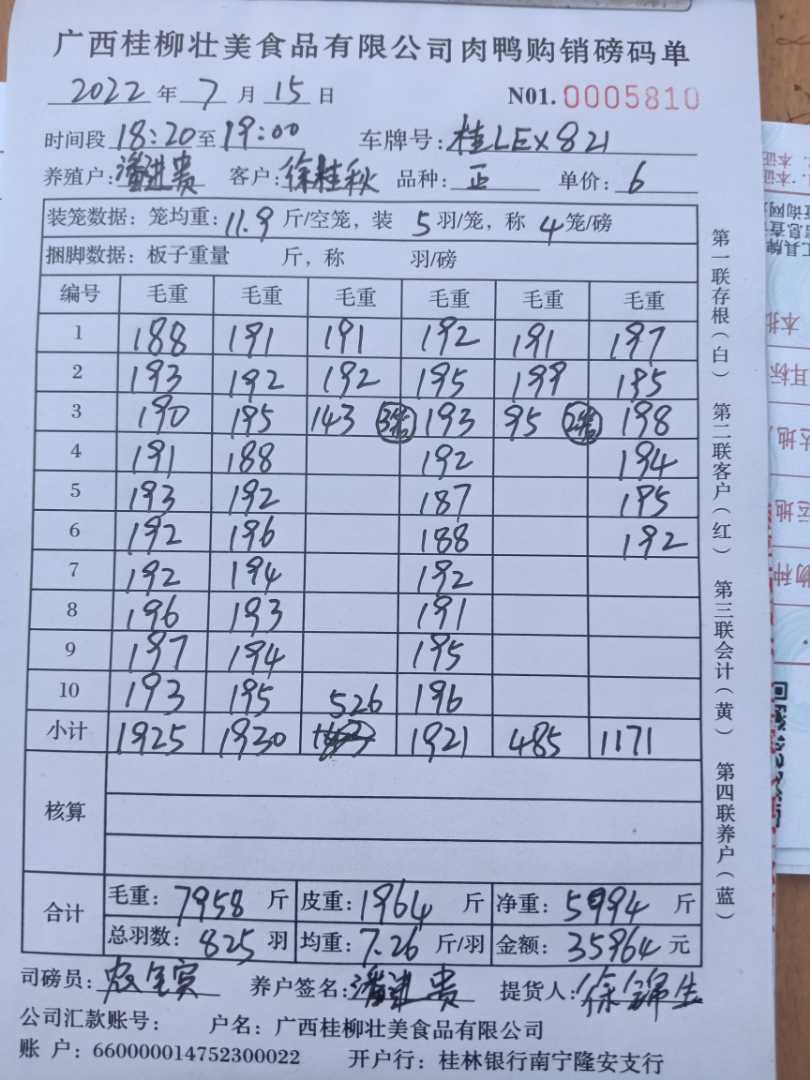 广西桂柳壮美食品有限公司肉鸭购销磅码单
2022 年 7 月 15 日 N01. 0005810
时间段 18:20 至 19:00 车牌号: 桂LEX821
养殖户: 潘进贵 客户: 徐桂秋 品种: 正 单价: 6
装笼数据: 笼均重: 11.9 斤/空笼, 装 5 羽/笼, 称 4 笼/磅
捆脚数据: 板子重量 斤, 称 羽/磅
编号 毛重 毛重 毛重 毛重 毛重 毛重
1 188 191 191 192 191 197
2 193 192 192 195 199 195
3 190 195 143 3笼 193 95 2笼 198
4 191 188 192 194
5 193 192 187 195
6 192 196 188 192
7 192 194 192
8 196 193 191
9 197 194 195
10 193 195 526 196
小计 1925 1930 1921 485 1171
核算
合计
毛重: 7958 斤 皮重: 1964 斤 净重: 5994 斤
总羽数: 825 羽 均重: 7.26 斤/羽 金额: 35964 元
司磅员: 养户签名: 潘进贵 提货人: 徐锦生
公司汇款账号: 户名: 广西桂柳壮美食品有限公司
账 户: 660000014752300022 开户行: 桂林银行南宁隆安支行
第一联存根(白) 第二联客户(红) 第三联会计(黄) 第四联养户(蓝)